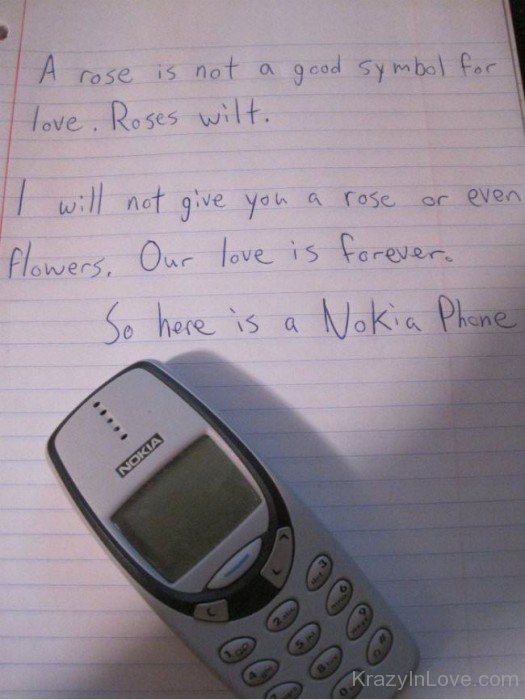 A rose is not a good symbol for
love. Roses wilt.
I will not give you a rose or even
flowers. Our love is forever.
So here is a Nokia Phone
NOKIA
KrazyInLove.com